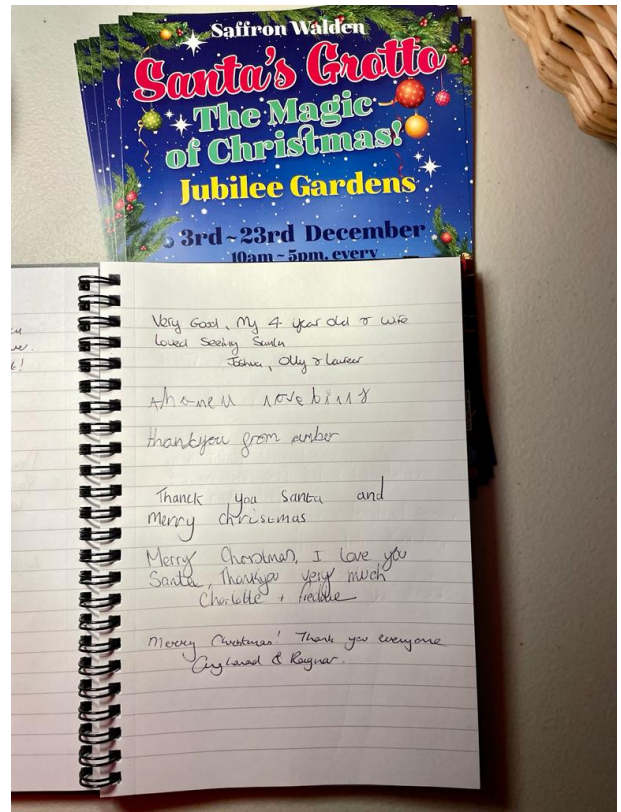 Saffron Walden
Santa's Grotto
The Magic
of Christmas!
Jubilee Gardens
3rd~23rd December
10am ~ 5pm, every
Very Good, My 4 year old & wife
Loved Seeing Santa
Joshua, Olly & Lauren
thankyou from amber
Thanck you santa and
merry christmas
Merry Christmas, I love you
Santa, Thankyou very much
Charlotte + Freddie
Merry Christmas! Thank you everyone
Angharad & Ragnar.